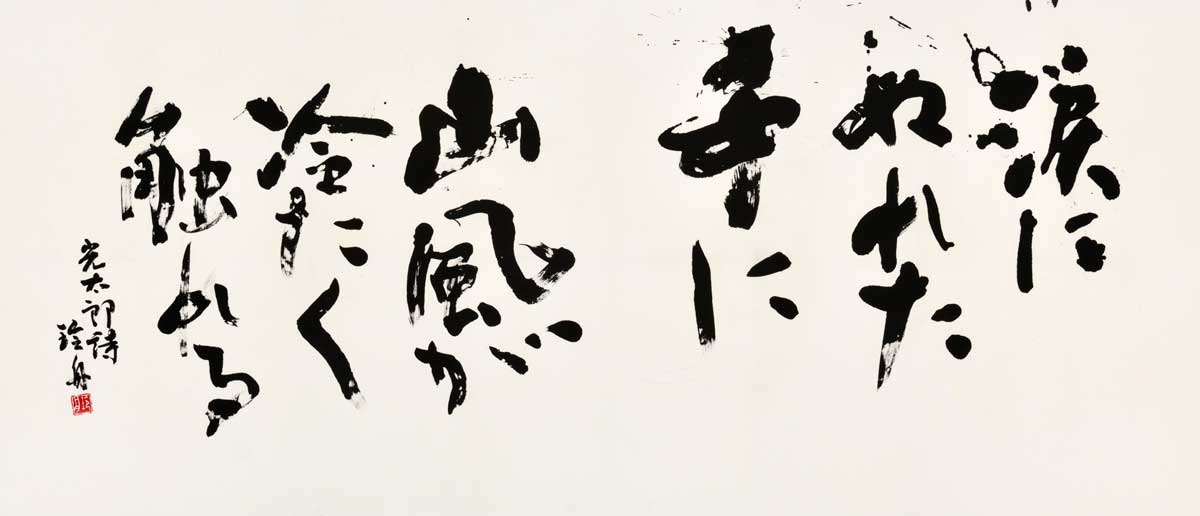 涙に
ぬれた
手に
山風が
冷たく
触れる
光太郎詩